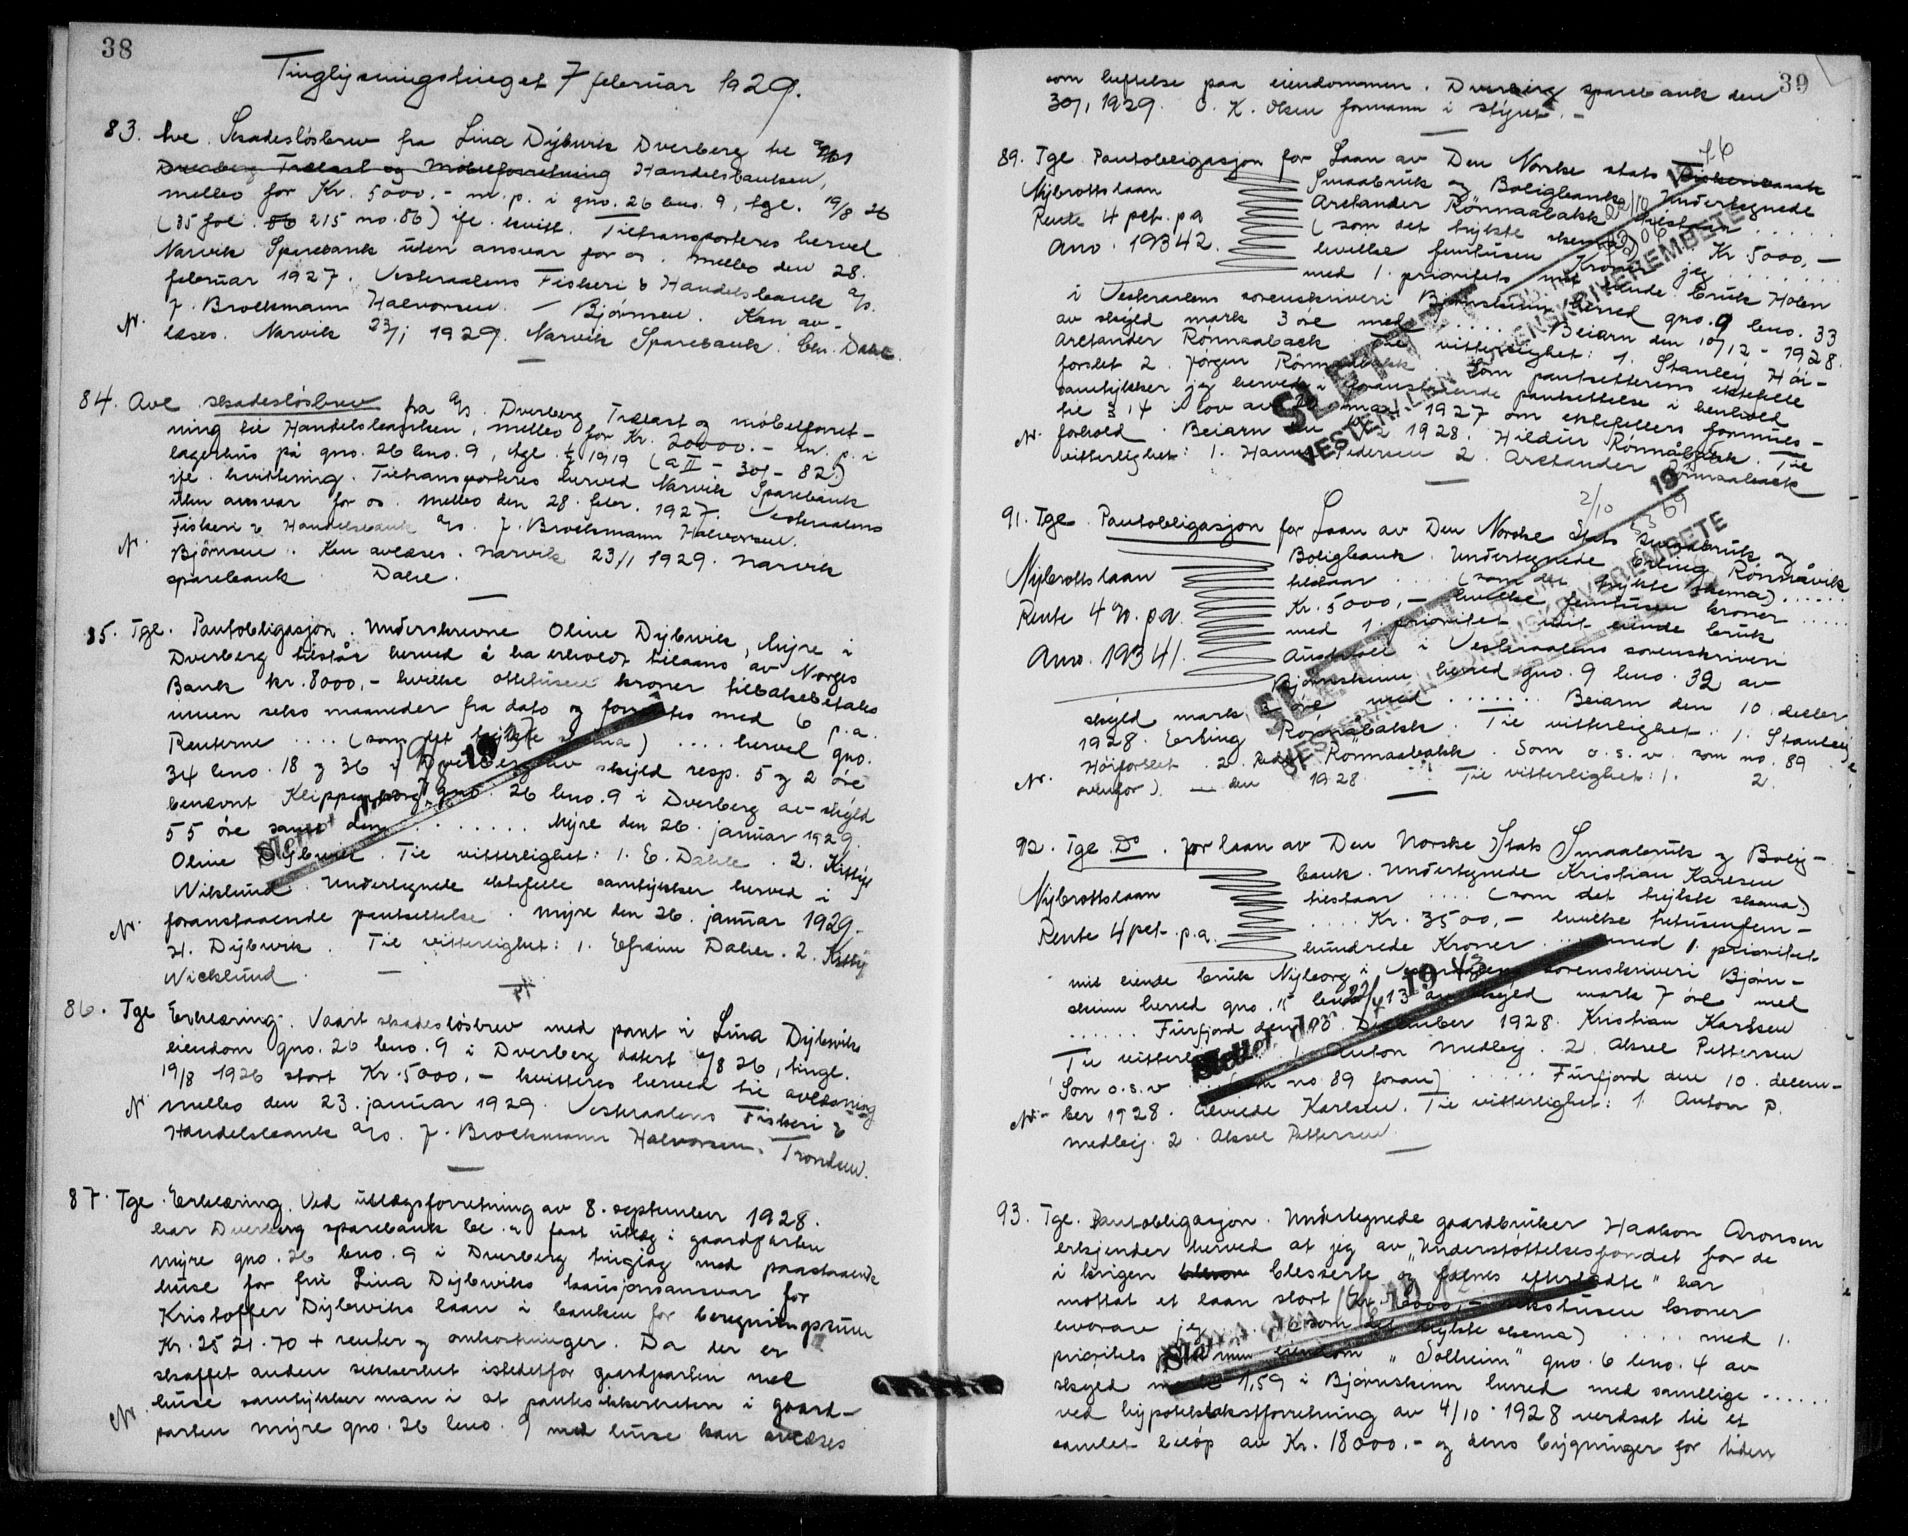 38
Tinglysningstinget 7 februar 1929.
83. Ave. Skadesløsbrev fra Lina Dybwik Dverberg til
Dverberg Trælast og Møbelforretning Handelsbanken,
Melbo for Kr. 5000.- m. p. i gno. 26 bno. 9, tgl. 19/8 26
(35 fol. 86 215 no. 86) ifl. kvitt. Tiltransporteres herved
Narvik Sparebank uten ansvar for os. Melbo den 28.
februar 1927. Vesteraalens Fiskeri & Handelsbank A/S.
J. Brockmann Halvorsen. / Bjørnsen. Kan av-
N. læses. Narvik 23/1 1929. Narvik Sparebank. Chr. Dahl.
84. Avl. skadesløsbrev fra A/S. Dverberg Trælast og møbelforret-
ning til Handelsbanken, Melbo for Kr. 20000.- m. p. i
lagerhus på gno. 26 bno. 9, tgl. 1919 (a II - 301 - 82)
ifl. kvittering. Tiltransporteres herved Narvik Sparebank
uten ansvar for os. Melbo den 28. febr. 1927. Vesteraalens
Fiskeri & Handelsbank A/S. J. Brockmann Halvorsen.
N. Bjørnsen. Kan avlæses. Narvik 23/1 1929. Narvik
sparebank Dahl.
85. Tgl. Pantobligasjon. Underskrevne Oline Dybwik, Myre i
Dverberg tilstår herved å ha erholdt tillaans av Norges
Bank kr. 8000,- hvilke ottetusen kroner tilbakebetales
innen seks maaneder fra dato og forrentes med 6 p.a.
Renterne .... (som det trykte skema) .... herved gno.
34 bno. 18 og 36 i Dverberg av skyld resp. 5 og 2 øre
benævnt Klippenborg, gno. 26 bno. 9 i Dverberg av skyld
55 øre samt den ........ Myre den 26. januar 1929.
Oline Dybwik. Til vitterlighet: 1. E. Dahle. 2. Kitty
Wiklund. Undertegnede ektefelle samtykker herved i
N. foranstaaende pantsettelse. Myre den 26. januar 1929.
H. Dybwik. Til vitterlighet: 1. Efraim Dahle. 2. Kitty
Wicklund.
Slettet den 19
86. Tgl Erklæring. Vaart skadesløsbrev med pant i Lina Dybwiks
eiendom gno. 26 bno. 9 i Dverberg datert 6/8 26, tingl.
19/8 1926 stort Kr. 5000,- kvitteres herved til avlæsning
N. Melbo den 23. januar 1929. Vesteraalens Fiskeri &
Handelsbank A/S. J. Brockmann Halvorsen. Trondsen.
87. Tgl. Erklæring. Ved utlægsforretning av 8. september 1928.
har Dverberg sparebank bl. a. faat utlæg i gaardparten
Myre gno. 26 bno. 9 i Dverberg tinglag med paastaaende
huse for fru Lina Dybwiks kausjonsansvar for
Kristoffer Dybwiks laan i banken for beregningssum
Kr. 2521.70 + renter og omkostninger. Da der er
skaffet anden sikkerhet istedetfor gaardparten med
huse samtykker man i at pantesikkerheten i gaard-
N. parten Myre gno. 26 bno. 9 med huse kan avlæses
39
som heftelse paa eiendommen. Dverberg sparebank den
30/1 1929. O. K. Olsen formann i styret. -
89. Tgl. Pantobligasjon for Laan av Den Norske stats Fiskeribank
Smaabruk og Boligbank. Undertegnede
Nybrottslaan
Arelander Rønnaabakk tilstaar .....
Rente 4 pct. p.a
(som det trykte skema) Kr. 5000,-
Anv. 19342.
hvilke femtusen Kroner jeg .......
med 1. prioritets mit eiende bruk Holen
i Vesteraalens sorenskriveri Bjørnskinn herred gno. 9 bno. 33
av skyld mark 3 øre med ...... Beiarn den 10/12 - 1928.
Arelander Rønnaabakk. Til vitterlighet: 1. Stanley Høi-
forslet 2. Jørgen Rønnaabakk. Som pantsetterens ektefelle
samtykker jeg herved i foranstaaende pantsettelse i henhold
til § 14 i lov av 20 mai 1927 om ektefellers formues-
N. forhold. Beiarn den 1928. Hildur Rønnåbakk. Til
vitterlighet: 1. Hanna Pedersen 2. Arelander Rønnaabakk
SLETTET
VESTERÅLEN SORENSKRIVEREMBETE
91. Tgl. Pantobligasjon for Laan av Den Norske Stats Smaabruk og
Boligbank. Undertegnede Erling Rønnåvik
Nybrottslaan
tilstaar .... (som det trykte skema) ......
Rente 4 %. p.a.
Kr. 5000,- hvilke femtusen kroner .....
med 1. prioritet mit eiende bruk
Anv. 19341.
i Vesteraalens sorenskriveri
Bjørnskinn herred gno. 9 bno. 32 av
skyld mark øre med ...... Beiarn den 10. decbr
1928. Erling Rønnåbakk. Til vitterlighet: 1. Stanley
Høiforslet. 2. Rønnaabakk. Som o.s.v. som no. 89
N. ovenfor). — den 1928. Til vitterlighet: 1. 2.
SLETTET
VESTERÅLEN SORENSKRIVEREMBETE
92. Tgl. Do. for laan av Den Norske Stats Smaabruk og Bolig-
bank. Undertegnede Kristian Karlsen
Nybrottslaan
tilstaar .... (som det trykte skema)
Rente 4 pct. p.a.
.... Kr. 3500,- hvilke tretusenfem-
hundrede Kroner .... med 1. prioritet
mit eiende bruk Nyborg i Vesteraalens sorenskriveri Bjørn-
skinn herred gno. 15 bno. 13 av skyld mark 7 øre med
...... Furfjord den 10. December 1928. Kristian Karlsen
Til vitterlighet: 1. Anton Medby. 2. Aksel Pettersen
Som o.s.v .... (som no. 89 foran) ..... Furfjord den 10. decem-
N. ber 1928. Karlsen. Til vitterlighet: 1. Anton P.
Medby. 2. Aksel Pettersen.
Slettet den 22/4 1943
93. Tgl. Pantobligasjon. Undertegnede gaardbruker Haakon Aronsen
erkjender herved at jeg av "Understøttelsesfondet for de
i krigen blesserte og falnes efterladte" har
mottat et laan stort Kr. 6000,- sekstusen kroner
hvorav jeg .... (som det trykte skema) .... med 1.
prioritets min eiendom "Solheim" gno. 6 bno. 4 av
skyld mark 1,59 i Bjørnskinn herred med samtlige ......
ved hypotektakstforretning av 4/10 - 1928 verdsat til et
samlet beløp av Kr. 18000.- og dens bygninger for tiden
Slettet den 19